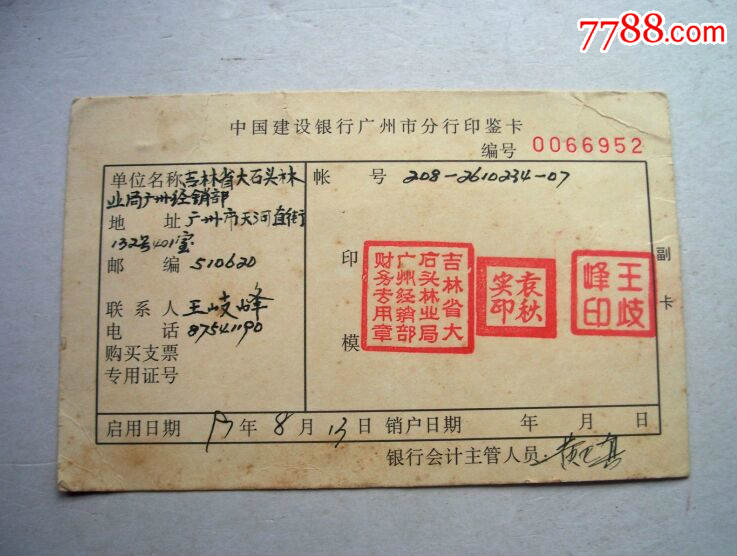 7788.com
中国建设银行广州市分行印鉴卡
编号 0066952
单位名称 吉林省大石头林
业局广州经销部
地 址 广州市天河直街
132号401室
邮 编 510620
联系人 王岐峰
电 话 87541190
购买支票
专用证号
帐 号 208-2610234-07
印
模
吉林省大
石头林业局
广州经销部
财务专用章
袁秋
实印
王岐
峰印
副
卡
启用日期 年 8 月 13 日 销户日期 年 月 日
银行会计主管人员: